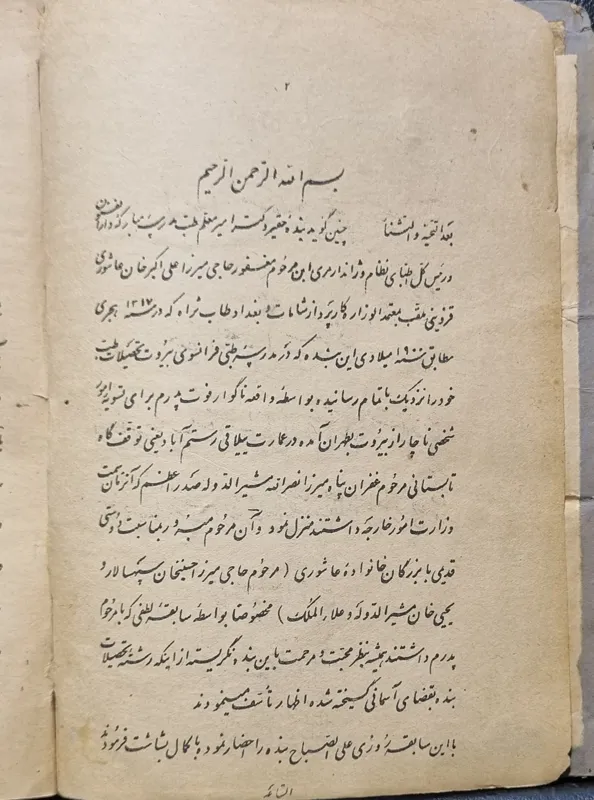 ۲
بسم الله الرحمن الرحیم
بعد التحیة والثنا چنین گوید بنده حقیر دکتر امیر معلم طب مدرسه مبارکه دارالفنون
و رئیس کل اطبای نظام و ژاندارمری ابن مرحوم مغفور حاجی میرزا علی اکبر خان عاشوری
قزوینی ملقب بمعتمد الوزاره کارپرداز شامات و بغداد طاب ثراه که در سنه ۱۳۱۷ هجری
مطابق سنه ۱۹۰۰ میلادی این بنده که در مدرسه طبی فرانسوی بیروت تحصیلات طب
خود را نزدیک باتمام رسانیده بواسطه واقعه ناگوار فوت پدرم برای تسویه امور
شخصی ناچار از بیروت بطهران آمده در عمارت ییلاقی رستم آباد یعنی توقف گاه
تابستانی مرحوم غفران پناه میرزا نصرالله مشیر الدوله صدر اعظم که آنزمان سمت
وزارت امور خارجه داشتند منزل نمود و آن مرحوم مبرور بمناسبت دوستی
قدیمی با بزرگان خانواده عاشوری (مرحوم حاجی میرزا حسینخان سپهسالار و
یحیی خان مشیر الدوله و علاء الملک) مخصوصا بواسطه سابقه لطفی که با مرحوم
پدرم داشتند همیشه بنظر محبت و مرحمت باین بنده نگریسته از اینکه رشته تحصیلات
بنده بقضای آسمانی گسیخته شده اظهار تأسف مینمودند
با این سابقه روزی علی الصباح بنده را احضار نموده با کمال بشاشت فرمودند